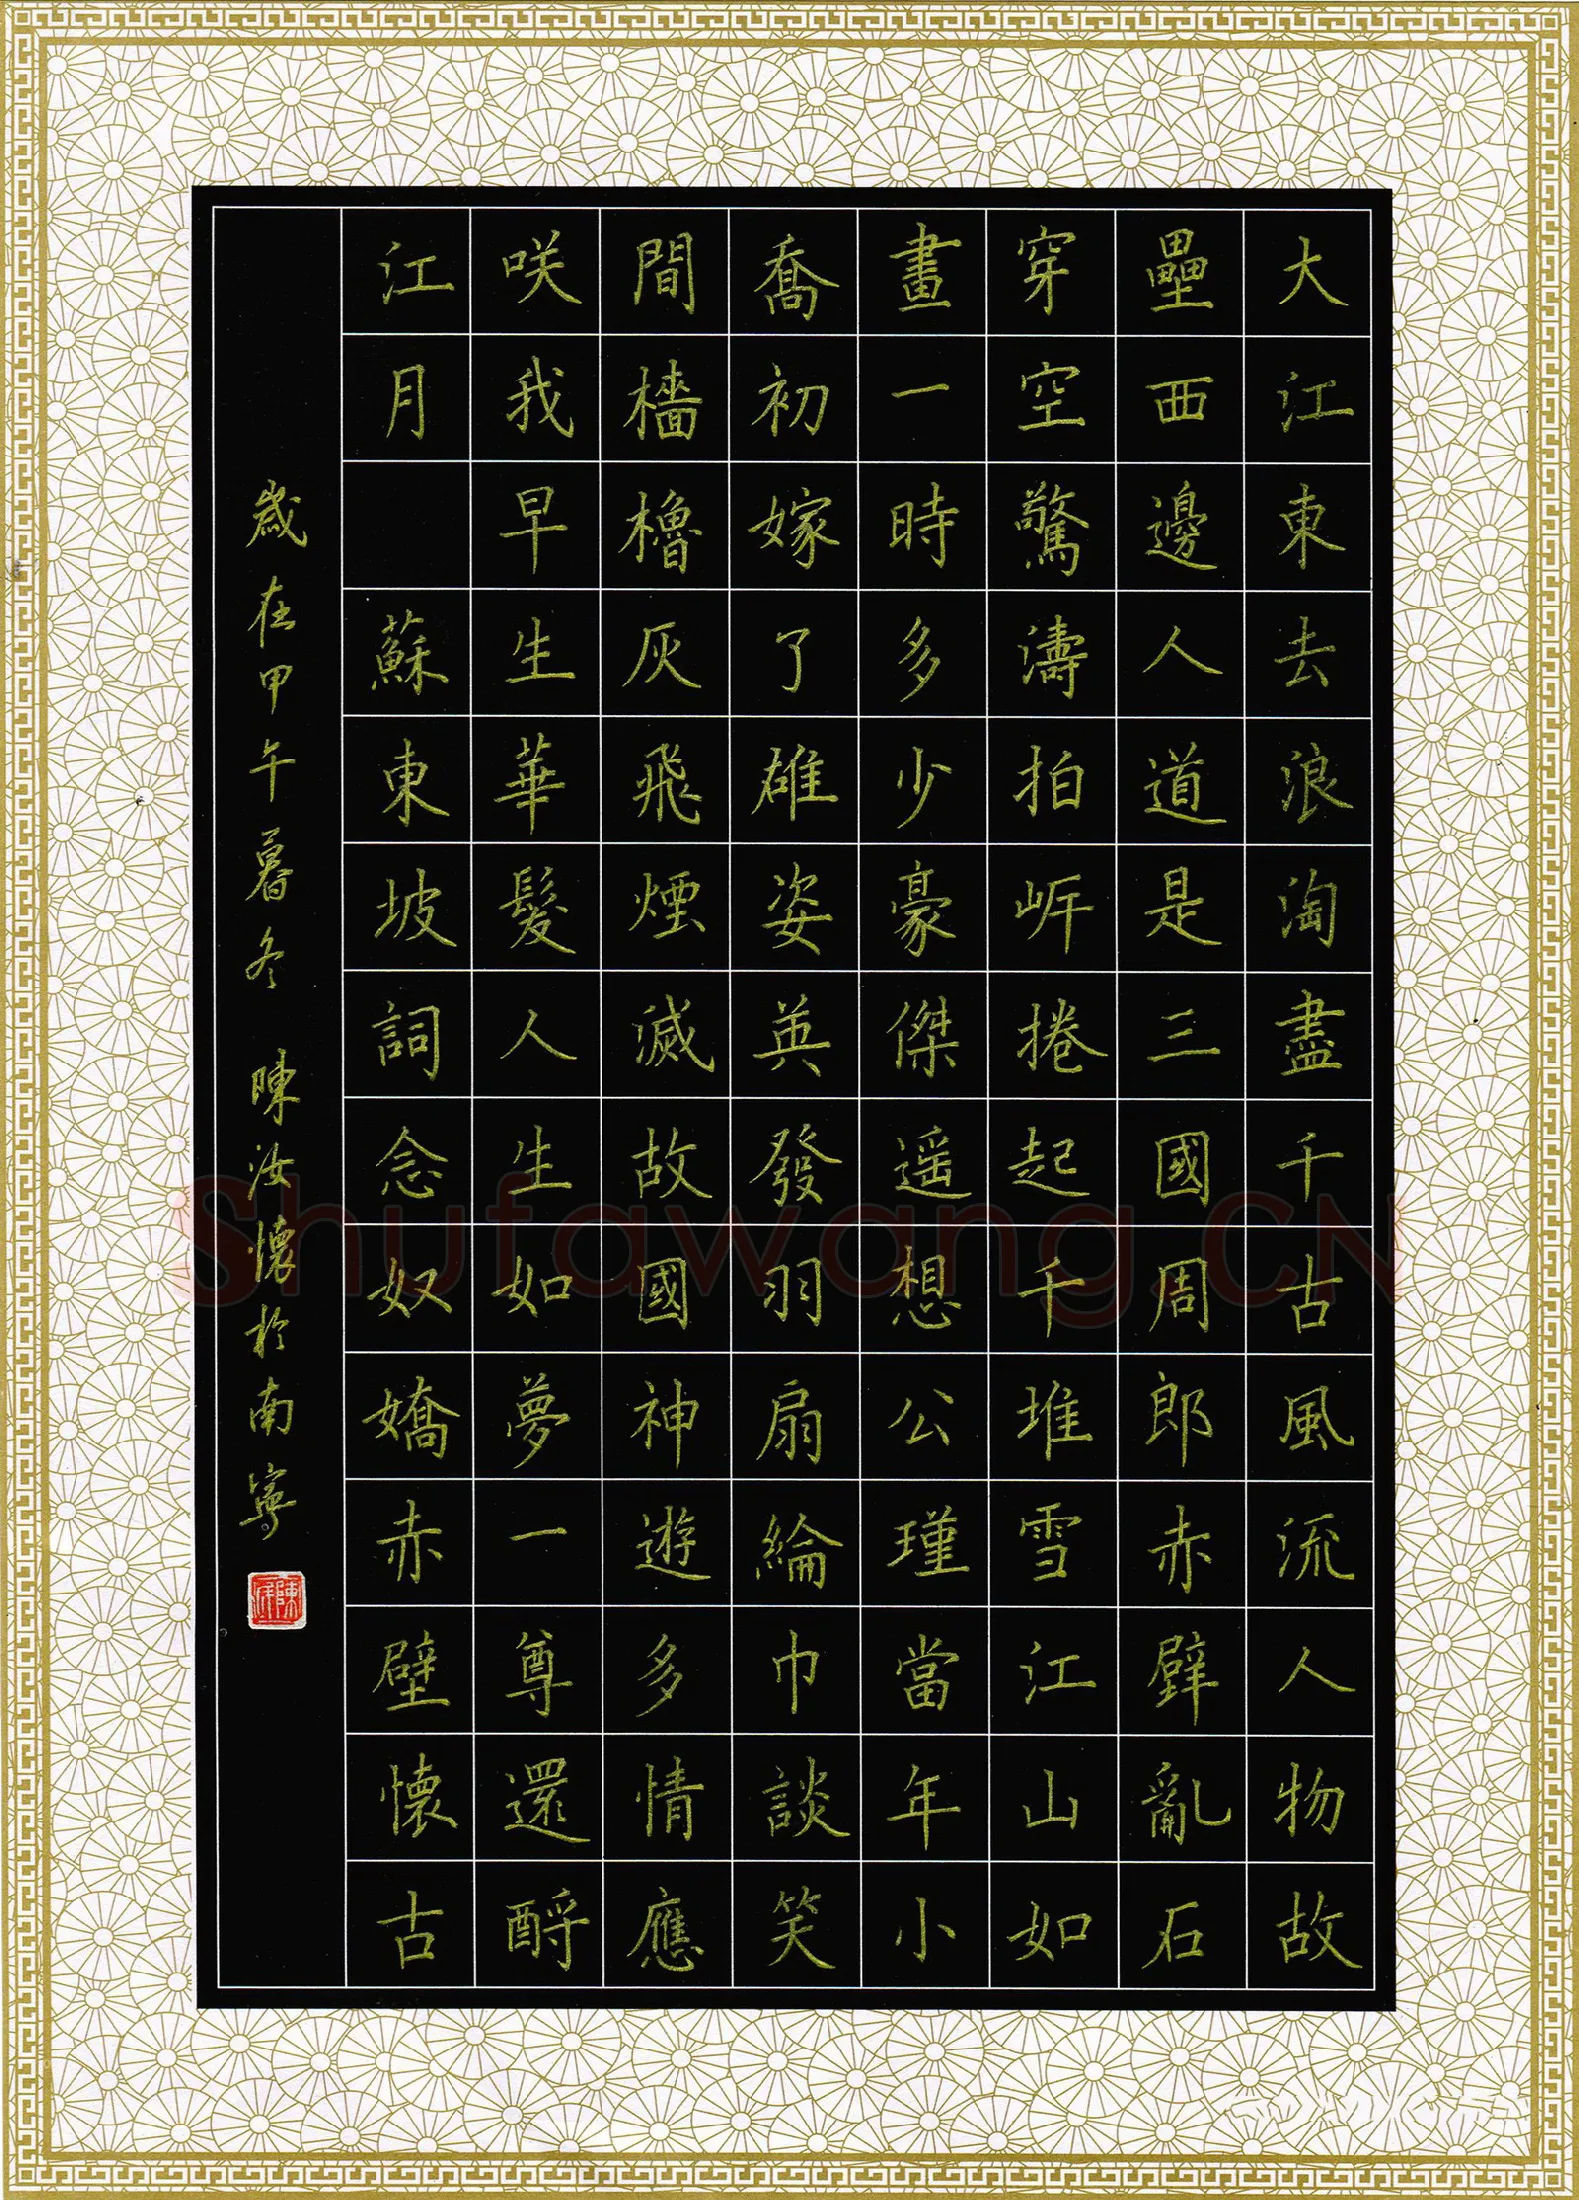 大江東去浪淘盡千古風流人物故
壘西邊人道是三國周郎赤壁亂石
穿空驚濤拍岸捲起千堆雪江山如
畫一時多少豪傑遥想公瑾當年小
喬初嫁了雄姿英發羽扇綸巾談笑
間檣櫓灰飛煙滅故國神遊多情應
咲我早生華髮人生如夢一尊還酹
江月 蘇東坡詞念奴嬌赤壁懷古
歲在甲午暮冬 陳汝懷於南寧
Shufawang.CN